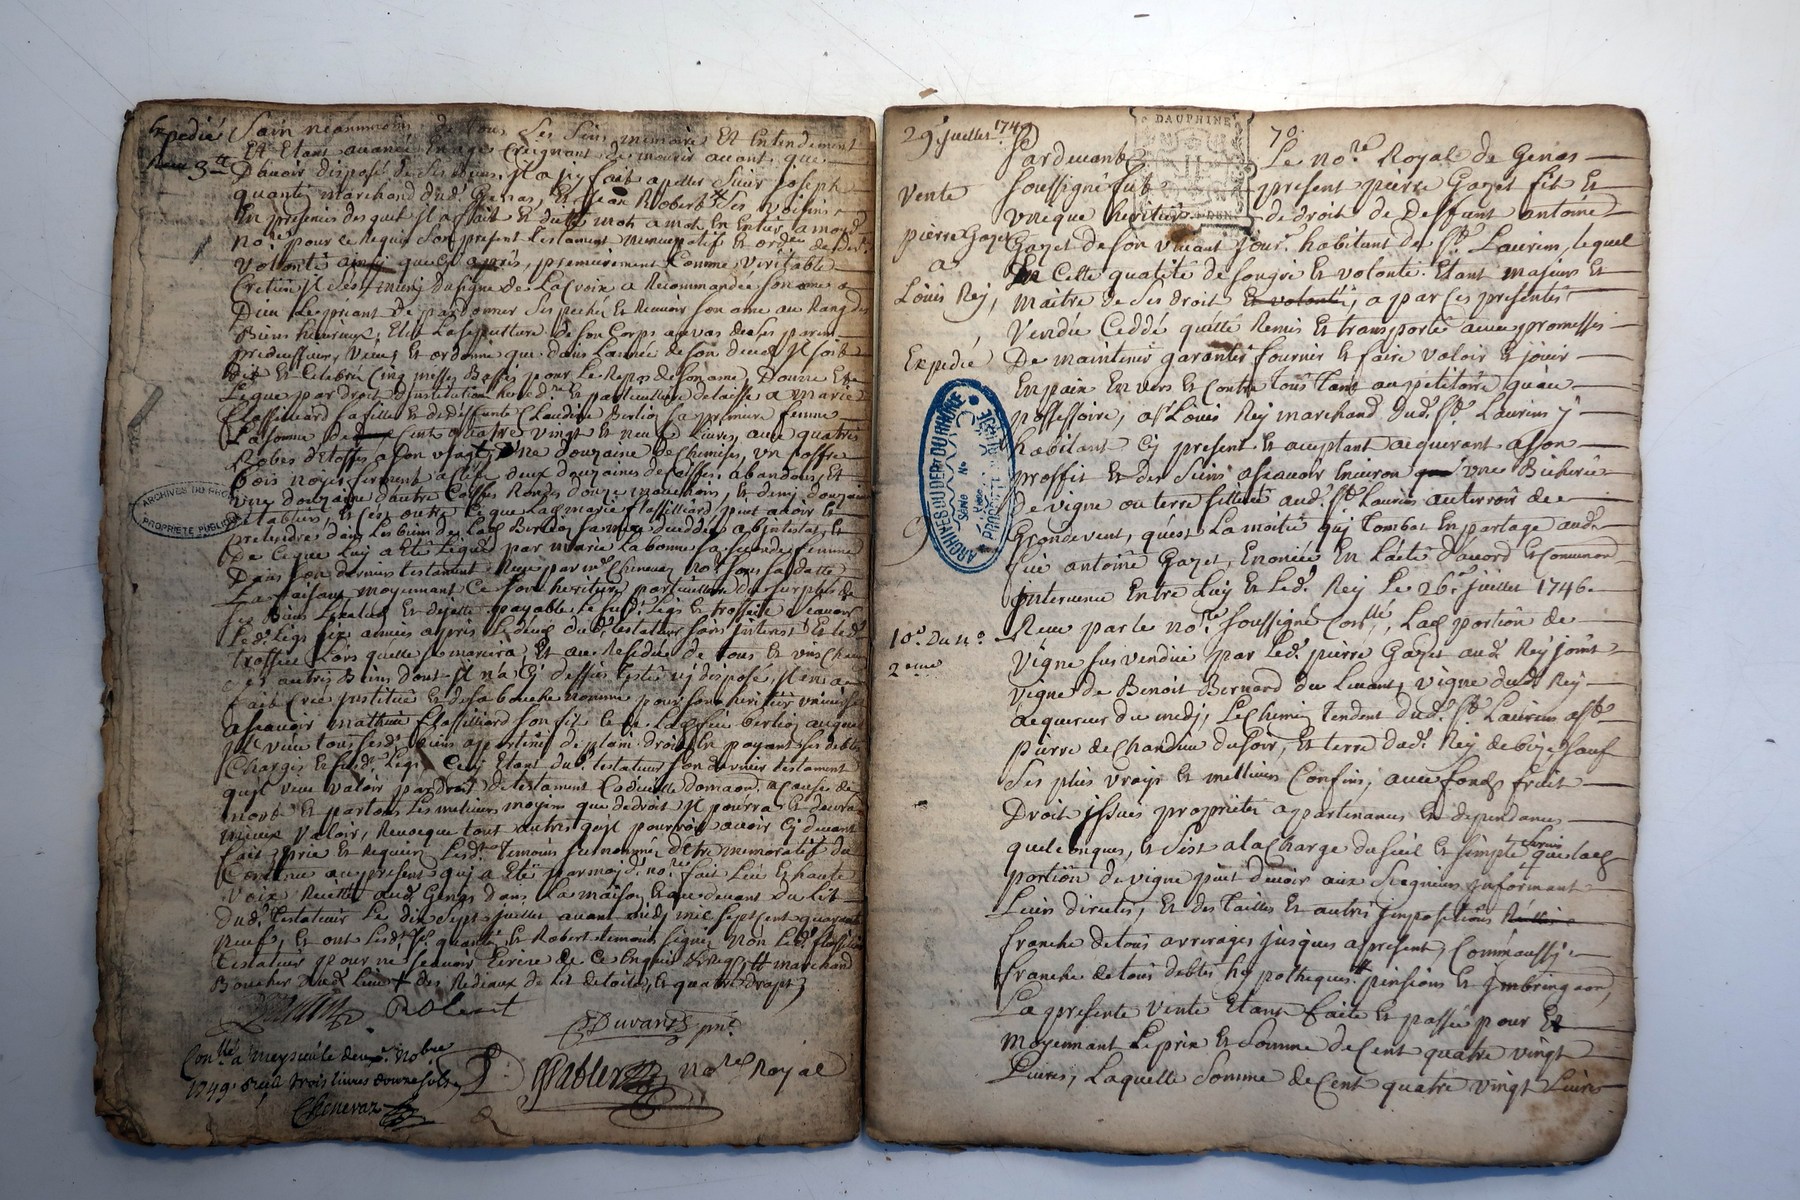 Expedié
Reçu 3tt
Sain néanmoins de tous ses sens memoire Et Entendement
Et Etant avancé En age Creignant de mourir avant que
D'avoir disposé de ses biens, Il a fait apeller sieur joseph
quantin marchand dud. Genas, Et jean Robert ses voisins
En presence desquels Il a fait Et dicté mot a mot En Entier a moyd.
nore. pour ce Requis son present testament nuncupatif Et ordre de der.
volonté ainsi que cy après, premierement Comme veritable
Cretien Il s'est muny du signe de La Croix a Recommandée son ame a
Dieu Le priant de pardonner ses pechés Et Recevoir son ame au Rang des
Biens heureux, Elit La sepulture de son Corps au vas de ses parens
predecesseurs, veut Et ordonne que dans L'année de son deces Il soit
dit Et Celebré Cinq messes Basses pour Le Repos de son ame, Donne Et
Legue par droit d'institution hered.re Et particuliere delaisse a marie
flassilliard sa fille Et de deffunte Claudine Berlioz sa premiere femme
La somme de Cent quatre vingt Et neuf Livres, avec quatre
Robes d'Etoffes a son usage, Une douzaine de Chemises, un Coffre
Bois noyer ferment a Clef, deux douzaines de Coiffes abandons, Et
une douzaine d'autre Coiffes Rondes douze mouchoirs, Et demy douzaine
tabliers, Et c'est outre Ce que Lad. marie flassilliard peut avoir Et
pretendre dans Les biens de Lad. Berlioz sa mere decedée abintestat, Et
De Ce que Luy a Eté Legué par marie Labonne sa seconde femme
Dans son dernier testament Reçu par me Chenevaz nore. sous sa datte
La faisant moyennant Ce son heritiere particuliere du surplus de
ses Biens Lexclud Et dejette payable Le sud. Legs Et trossel a sçavoir
Led. Legs six années après Le deces dud. testateur sans interest Et Led.
trossel Lors quelle se mariera, Et au Residu de tous Et uns Chacuns
ses autres Biens dont Il n'a Cy dessus testé ny disposé, Il en a
fait Créé institué Et de sa bouche nommé pour son heritier universel
a sçavoir mathieu flassilliard son fils Et de Lad. feue berlioz auquel
Il veut tous sesd. Biens appartenir de plain droit En payant ses debtes
Charges Et sesd. Legs Cecy Etant dud. testateur son dernier testament
qu'il veut valoir par droit de testament Codicille donaon. a cause de
mort Et par tous Les meilleurs moyens que de droit Il pourra Et devra
mieux valoir, Revocque tout autres qu'il pourroit avoir Cy devant
fait, prie Et Requiers Lesd. Temoins surnommés d'etre memoratif du
Contenu au present qui a Eté par moyd. nore. fait Leu Et haute
voix Recitté aud. Genas dans La maison Et au devant du Lit
Dud. Testateur Le dix sept juillet avant midy mil sept cent quarante
neuf, Et ont Lesd. srs. quantin Et Robert temoins signés non Led. flassilliard
testateur pour ne sçavoir Ecrire de Ce Enquis Et Requis # marchand
Boucher dud. Lieu + des Rideaux de Lit de toile, Et quatre draps
Robert
Duvard pnt.
Conllé a meyzieu le deux nobre
1749. Reçu trois livres douze sols
Chenevaz
Sablier nore Royal
ARCHIVES DU RHÔNE
PROPRIÉTÉ PUBLIQUE
29e. juillet 1749
7o.
DAUPHINÉ
Vente
pierre Gayet
a
Louis Rey,
Expedié
10e. Du no.
2eme
ARCHIVES DU DEPT DU RHÔNE
Série
No
PROPRIÉTÉ PUBLIQUE
Pardevant Le nore. Royal de Genas
soussigné fut present pierre Gayet fils Et
unique heritier de droit de Deffunt antoine
Gayet de son vivant jour. habitant de St. Laurens, lequel
En Cette qualité de son gré Et volonté. Etant majeur Et
maitre de ses droit Et volonté, a par Ces presentes
Vendu Ceddé quitté Remis Et transporté avec promesses
De maintenir garantir fournir Et faire valoir Et jouir
En paix En vers Et Contre tous Tant au petitoire qu'au
possessoire, a sr. Louis Rey marchand dud. St. Laurens y
habitant Cy present Et aceptant aquerant a son
proffit Et des siens a sçavoir Environ une Bicherée
de vigne ou terre scittuée aud. St. Laurens au terroir de
Grandevent, qu'est La moitié qui Tombat En partage aud.
feu antoine Gayet, Enoncée En L'acte d'acord Et Convention
intervenue Entre Luy Et Led. Rey Le 26e. juillet 1746.
Reçu par le nore. soussigné Conllé, Lad. portion de
vigne sus vendue par Led. pierre Gayet aud. Rey joint
vigne de Benoit Bernard du Levant, vigne dud. Rey
aquereur du midy, Le Chemin Tendent dud. St. Laurens a St.
pierre de Chandieu du soir, Et terre dud. Rey de bize sauf
ses plus vrays Et meilleurs Confins, avec fonds fruit
Droit issues proprietés appartenances Et dependances
quelconques, Et s'est a la Charge du seul Et simple servis que lad.
portion de vigne peut devoir aux Seigneurs informant
Leurs directes, Et des tailles Et autres jmpositions
franche de tous arrerages jusques a present, Comm'aussy
franche de tous debtes hypotheques pensions Et jmbringaon,
La presente vente Etant faite Et passée pour Et
moyennant Le prix Et somme de Cent quatre vingt
Livres, Laquelle somme de Cent quatre vingt Livres